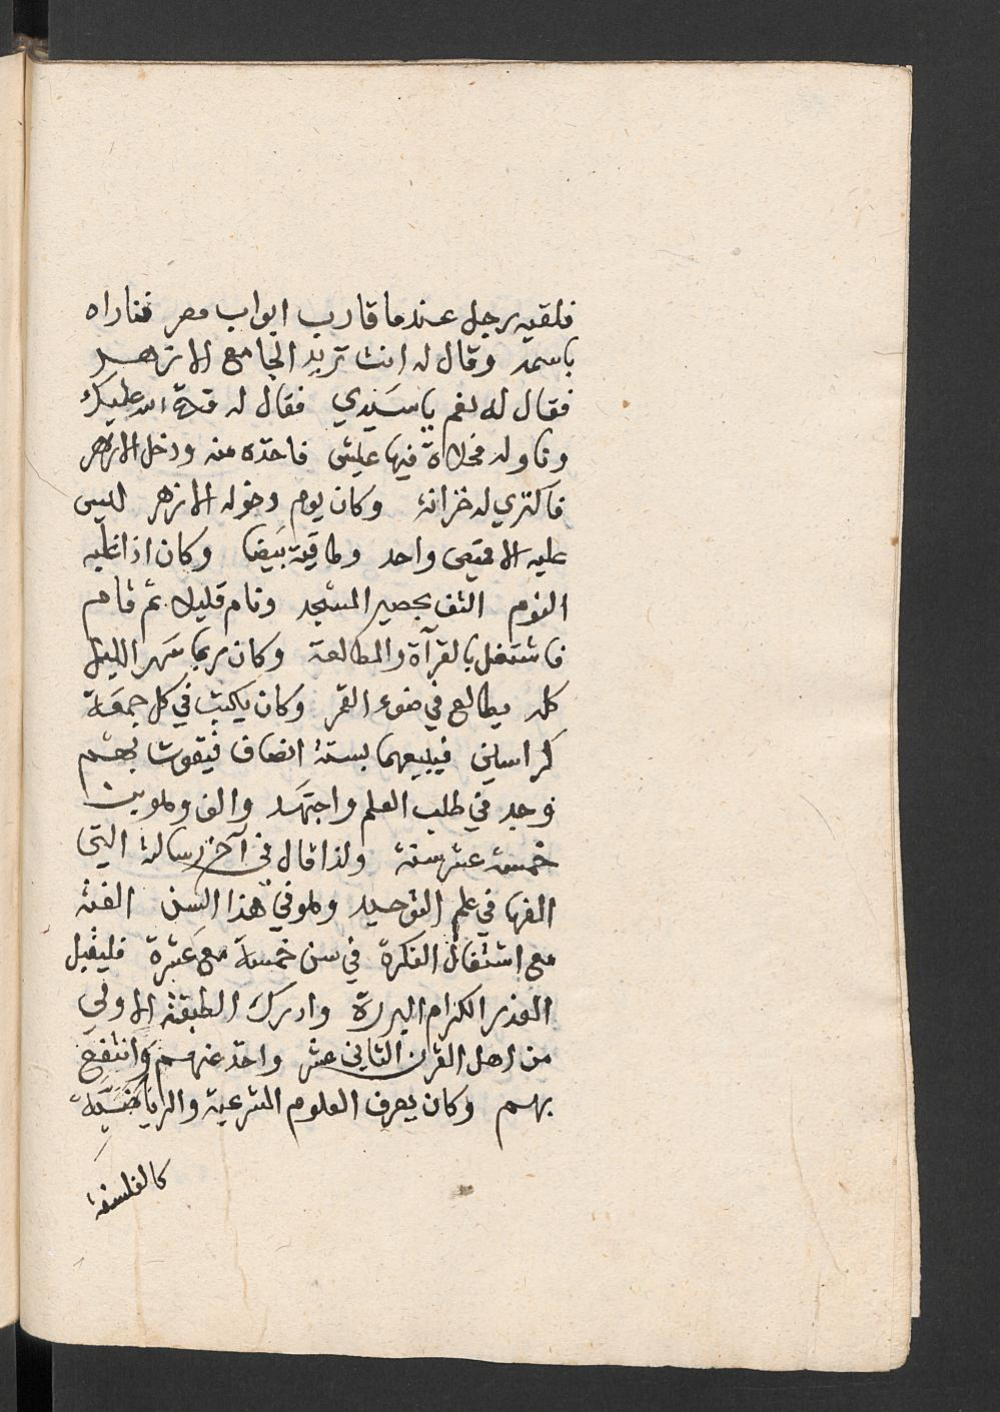 فلقيه رجل عندما قارب ابواب مصر فناداه
باسمه وقال له انت تريد الجامع الازهر
فقال له نعم ياسيدي فقال له فتح الله عليك
وناوله مخلاة فيها عيش فاخذه منه ودخل الازهر
فاكتري له خزانة وكان يوم دخوله الازهر ليس
عليه الا قميص واحد وطاقية بيضا وكان اذا غلبه
النوم التف بحصير المسجد ونام قليلا ثم قام
فاشتغل بالقرآة والمطالعة وكان ربما سهر الليل
كله يطالع في ضوء القمر وكان يكتب في كل جمعة
كراسين فيبيعهما بستة انصاف فيقوت بهم
وجد في طلب العلم واجتهد والف وهو بن
خمسة عشر سنة ولذا قال في آخر رسالة التي
الفها في علم التوحيد وهو في هذا السن الفت
مع اشتغال الفكرة في سن خمسة مع عشرة فليقبل
العذر الكرام البررة وادرك الطبقة الاولي
من اهل القرن الثاني عشر واخذ عنهم وانتفع
بهم وكان يعرف العلوم الشرعية والرياضية
كالفلسفة